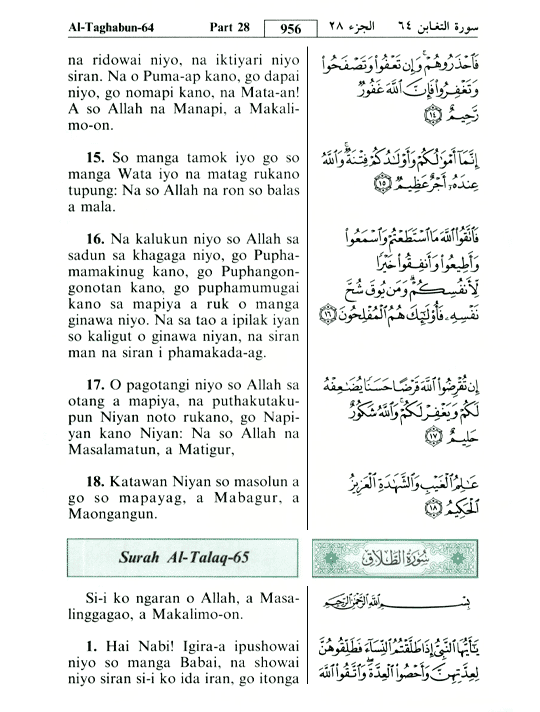 Al-Taghabun-64 Part 28 956 الجزء ٢٨ سورة التغابن ٦٤
na ridowai niyo, na iktiyari niyo
siran. Na o Puma-ap kano, go dapai
niyo, go nomapi kano, na Mata-an!
A so Allah na Manapi, a Makali-
mo-on.
15. So manga tamok iyo go so
manga Wata iyo na matag rukano
tupung: Na so Allah na ron so balas
a mala.
16. Na kalukun niyo so Allah sa
sadun sa khagaga niyo, go Pupha-
mamakinug kano, go Puphangon-
gonotan kano, go puphamumugai
kano sa mapiya a ruk o manga
ginawa niyo. Na sa tao a ipilak iyan
so kaligut o ginawa niyan, na siran
man na siran i phamakada-ag.
17. O pagotangi niyo so Allah sa
otang a mapiya, na puthakutaku-
pun Niyan noto rukano, go Napi-
yan kano Niyan: Na so Allah na
Masalamatun, a Matigur,
18. Katawan Niyan so masolun a
go so mapayag, a Mabagur, a
Maongangun.
Surah Al-Talaq-65
Si-i ko ngaran o Allah, a Masa-
linggagao, a Makalimo-on.
1. Hai Nabi! Igira-a ipushowai
niyo so manga Babai, na showai
niyo siran si-i ko ida iran, go itonga
فَاحْذَرُوهُمْ ۚ وَإِن تَعْفُوا وَتَصْفَحُوا
وَتَغْفِرُوا فَإِنَّ اللَّهَ غَفُورٌ
رَّحِيمٌ ١٤
إِنَّمَا أَمْوَالُكُمْ وَأَوْلَادُكُمْ فِتْنَةٌ ۚ وَاللَّهُ
عِندَهُ أَجْرٌ عَظِيمٌ ١٥
فَاتَّقُوا اللَّهَ مَا اسْتَطَعْتُمْ وَاسْمَعُوا
وَأَطِيعُوا وَأَنفِقُوا خَيْرًا
لِّأَنفُسِكُمْ ۗ وَمَن يُوقَ شُحَّ
نَفْسِهِ فَأُولَٰئِكَ هُمُ الْمُفْلِحُونَ ١٦
إِن تُقْرِضُوا اللَّهَ قَرْضًا حَسَنًا يُضَاعِفْهُ
لَكُمْ وَيَغْفِرْ لَكُمْ ۚ وَاللَّهُ شَكُورٌ
حَلِيمٌ ١٧
عَالِمُ الْغَيْبِ وَالشَّهَادَةِ الْعَزِيزُ
الْحَكِيمُ ١٨
سُورَةُ الطَّلَاقِ
بِسْمِ اللَّهِ الرَّحْمَٰنِ الرَّحِيمِ
يَا أَيُّهَا النَّبِيُّ إِذَا طَلَّقْتُمُ النِّسَاءَ فَطَلِّقُوهُنَّ
لِعِدَّتِهِنَّ وَأَحْصُوا الْعِدَّةَ ۖ وَاتَّقُوا اللَّهَ